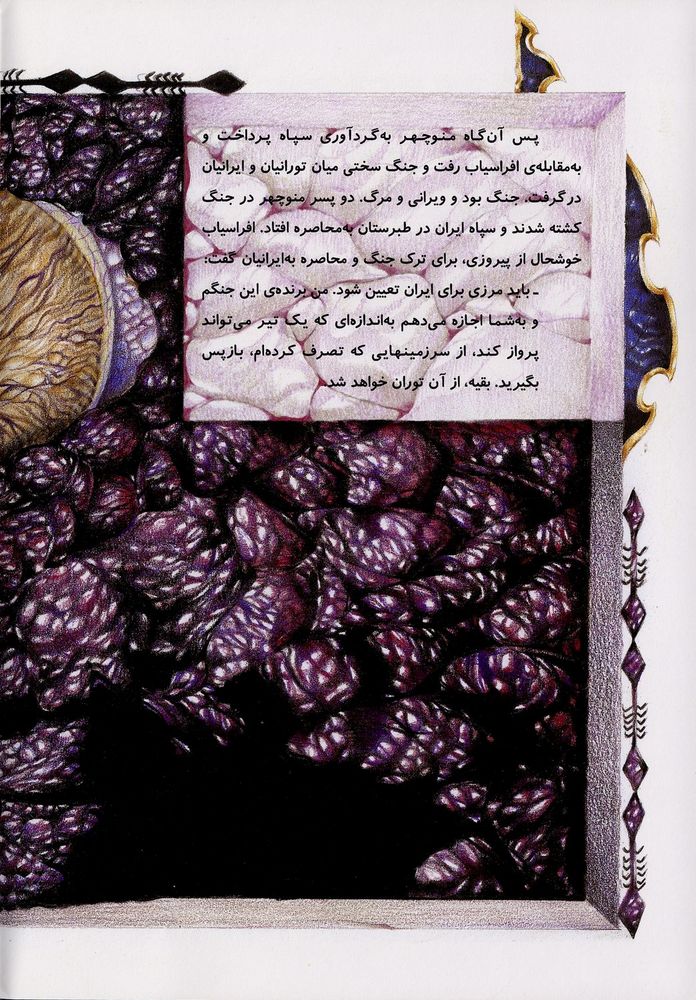 پس آن‌گاه منوچهر به‌گردآوری سپاه پرداخت و
به‌مقابله‌ی افراسیاب رفت و جنگ سختی میان تورانیان و ایرانیان
درگرفت. جنگ بود و ویرانی و مرگ. دو پسر منوچهر در جنگ
کشته شدند و سپاه ایران در طبرستان به‌محاصره افتاد. افراسیاب
خوشحال از پیروزی، برای ترک جنگ و محاصره به‌ایرانیان گفت:
ـ باید مرزی برای ایران تعیین شود. من برنده‌ی این جنگم
و به‌شما اجازه می‌دهم به‌اندازه‌ای که یک تیر می‌تواند
پرواز کند، از سرزمینهایی که تصرف کرده‌ام، بازپس
بگیرید. بقیه، از آن توران خواهد شد.